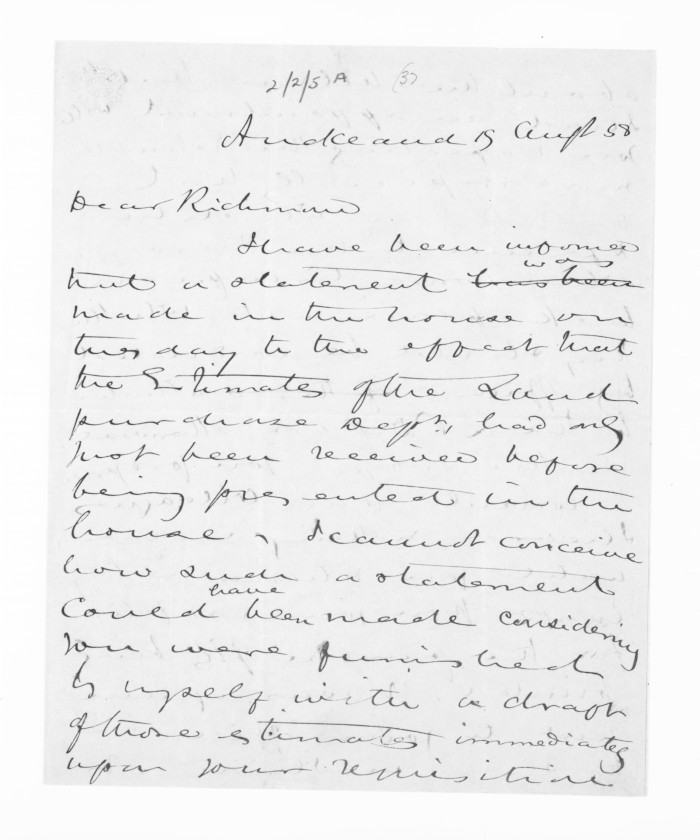 2/2/5A (3)
Auckland 19 Augt 58
Dear Richmond
I have been informed
that a statement was ~~has been~~
made in the house on
this day to the effect that
the Estimates of the Land
purchase Dept, had only
just been received before
being presented in the
house, I cannot conceive
how such a statement
could have been made considering
you were furnished
by myself with a draft
of those estimates immediately
upon your requisition